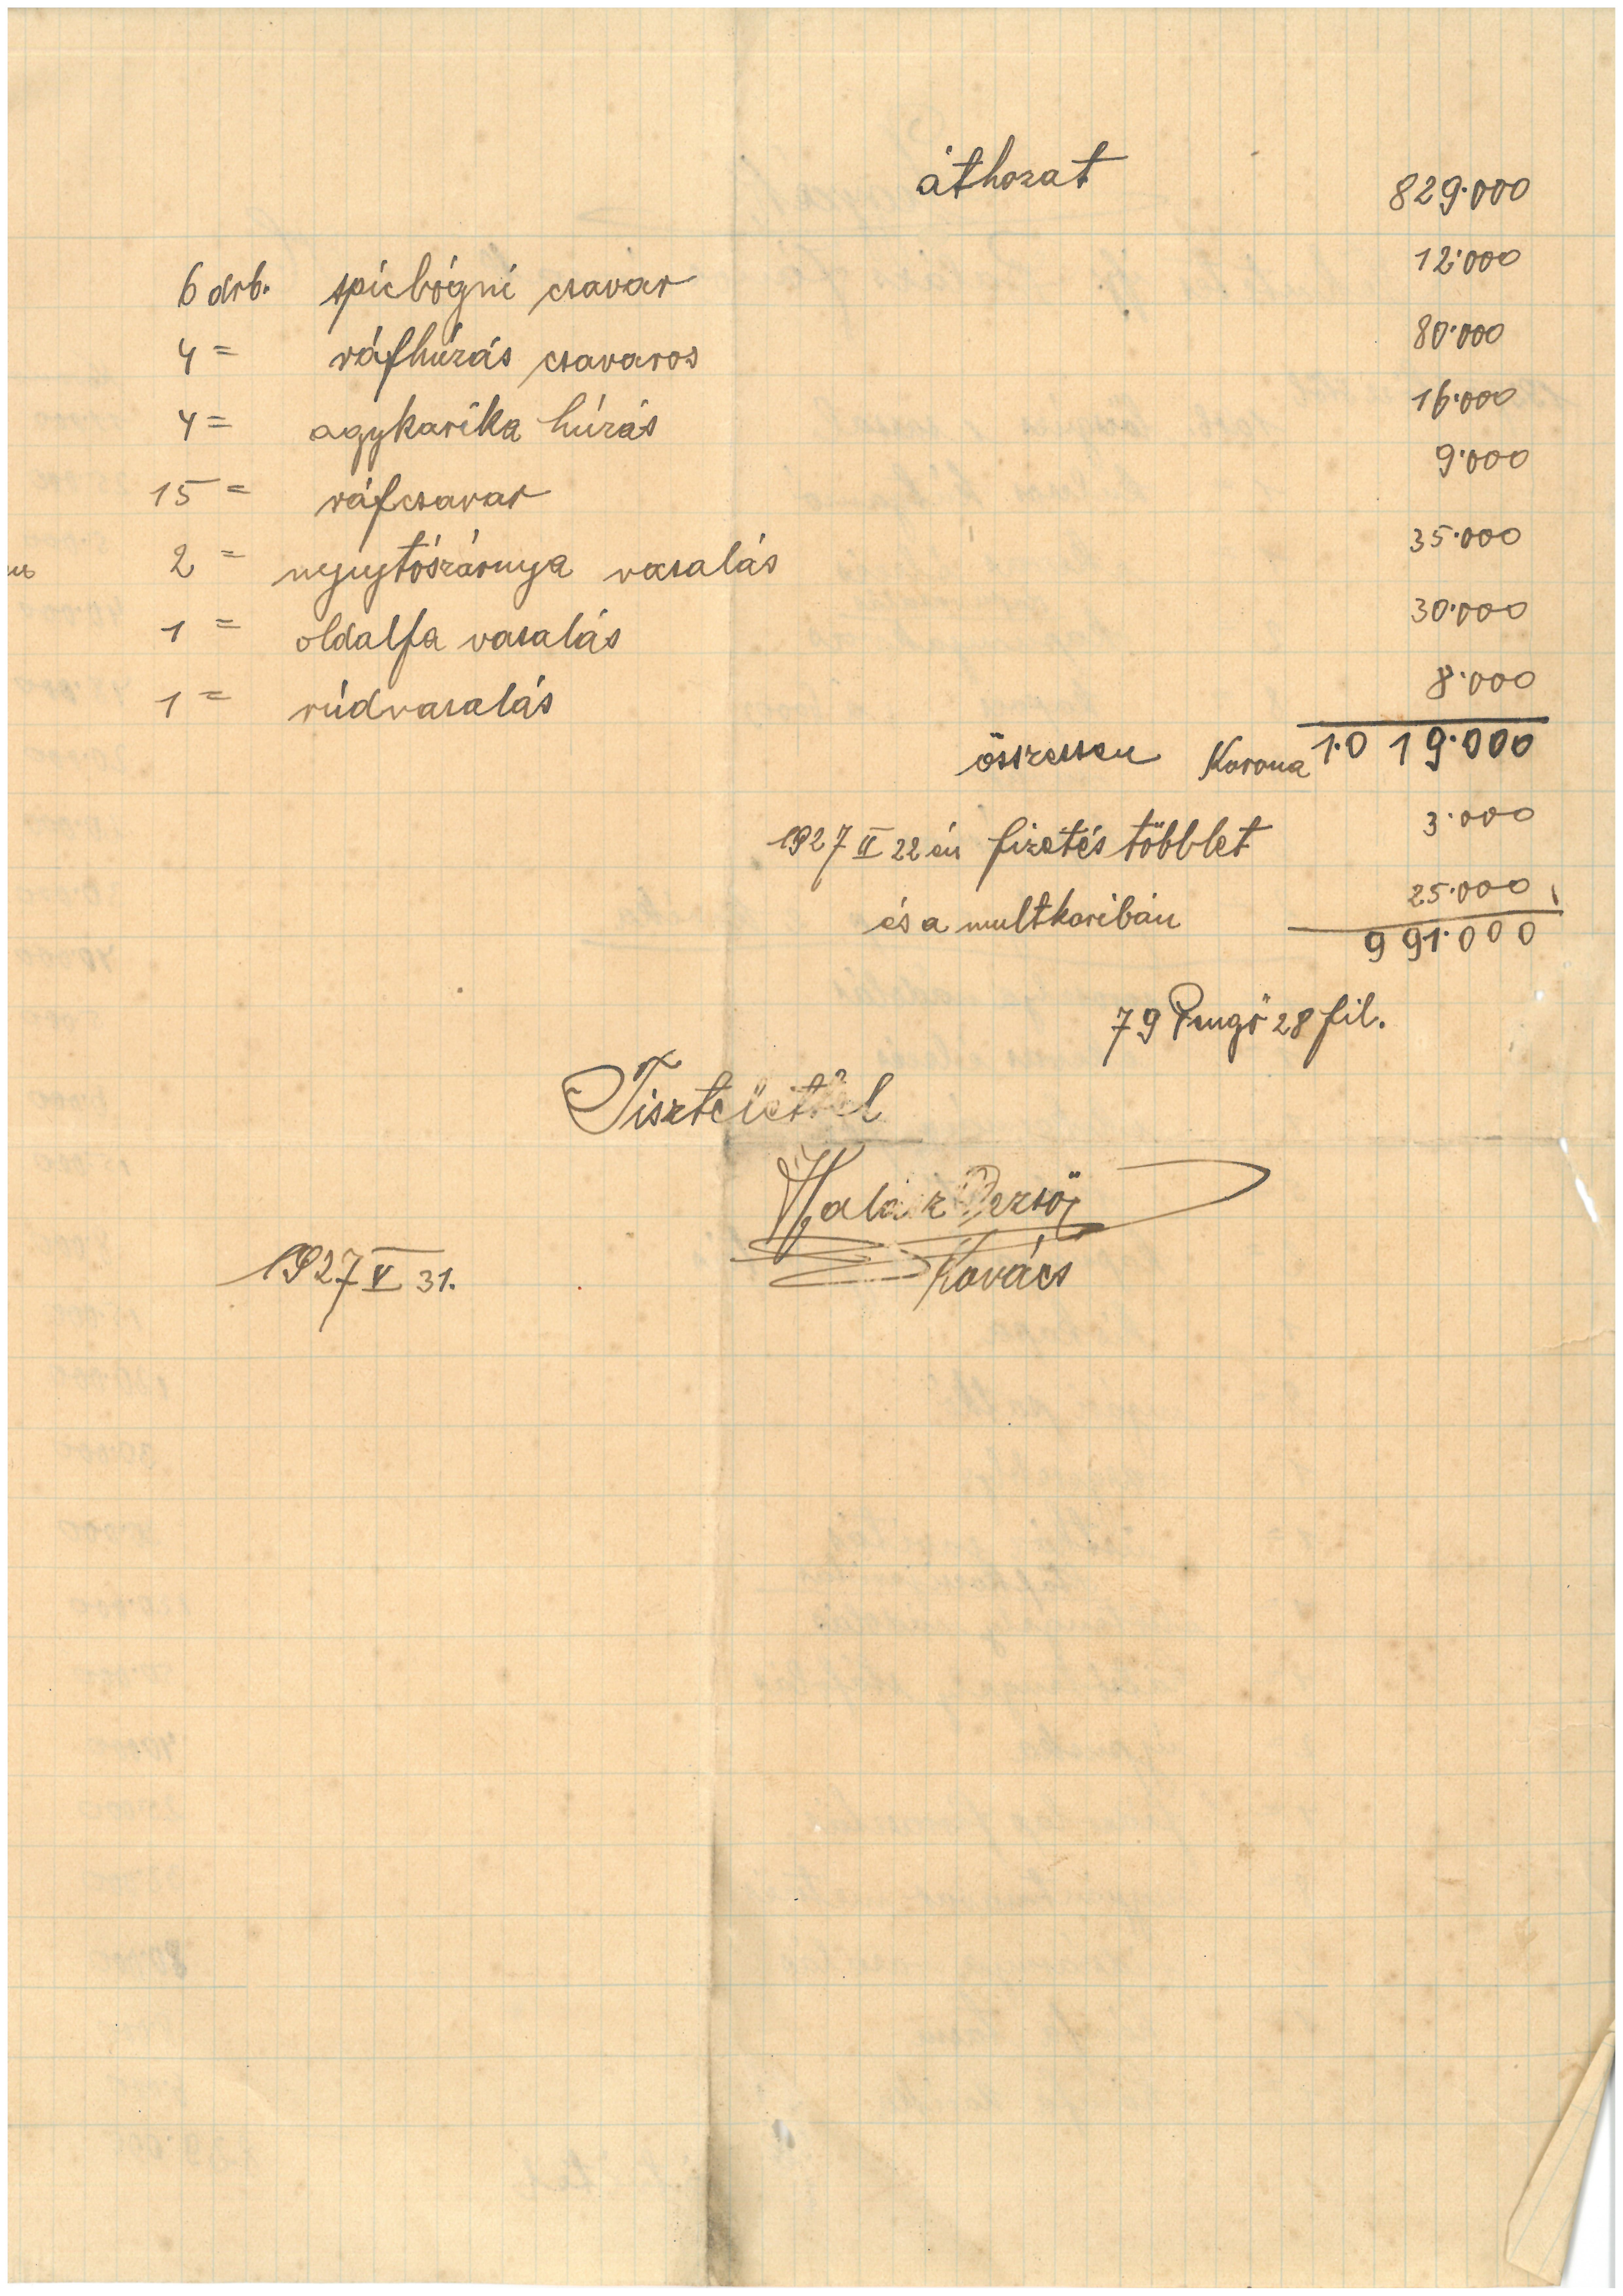 áthozat 829·000
6 drb. spicbógni csavar 12·000
4 = ráfhúzás csavaros 80·000
4 = agykarika húzás 16·000
15 = ráfcsavar 9·000
2 = nyujtószárnya vasalás 35·000
1 = oldalfa vasalás 30·000
1 = rúdvasalás 8·000
összessen Korona 1·019·000
1927 II 22 én fizetés többlet 3·000
és a multkoribán 25·000
991·000
79 Pengő 28 fil.
Tisztelettel
Halász Dezső
Kovács
1927 V 31.